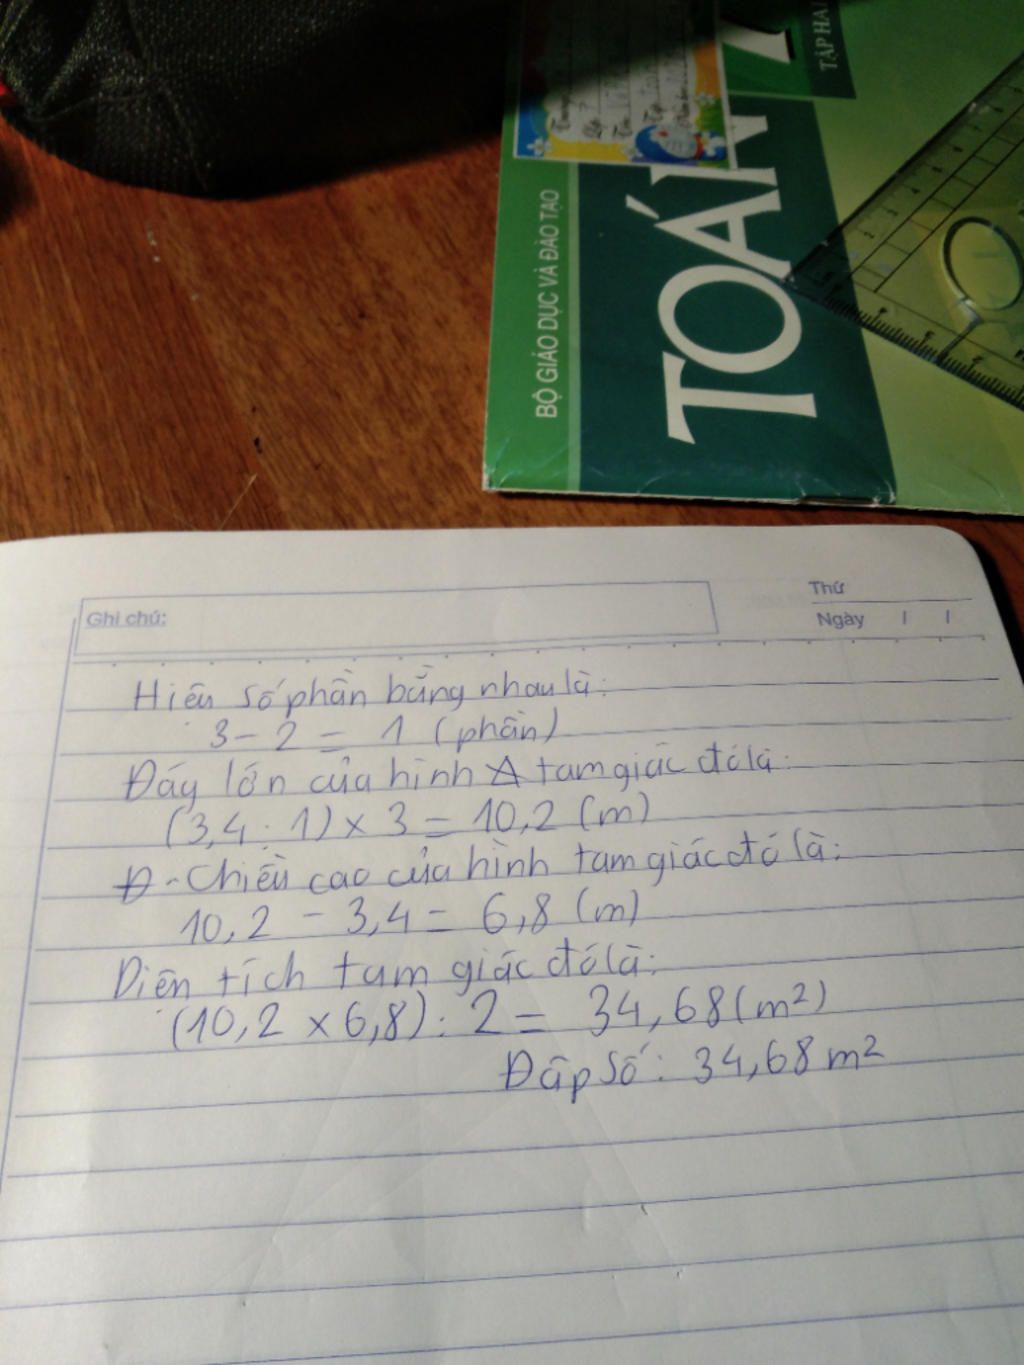 TOÁN
TẬP HAI
BỘ GIÁO DỤC VÀ ĐÀO TẠO
Ghi chú:
Thứ
Ngày / /
Hiệu số phần bằng nhau là:
3 - 2 = 1 (phần)
Đáy lớn của hình tam giác đó là:
(3,4 : 1) x 3 = 10,2 (m)
Đ - Chiều cao của hình tam giác đó là:
10,2 - 3,4 = 6,8 (m)
Diện tích tam giác đó là:
(10,2 x 6,8) : 2 = 34,68 (m²)
Đáp số: 34,68 m²